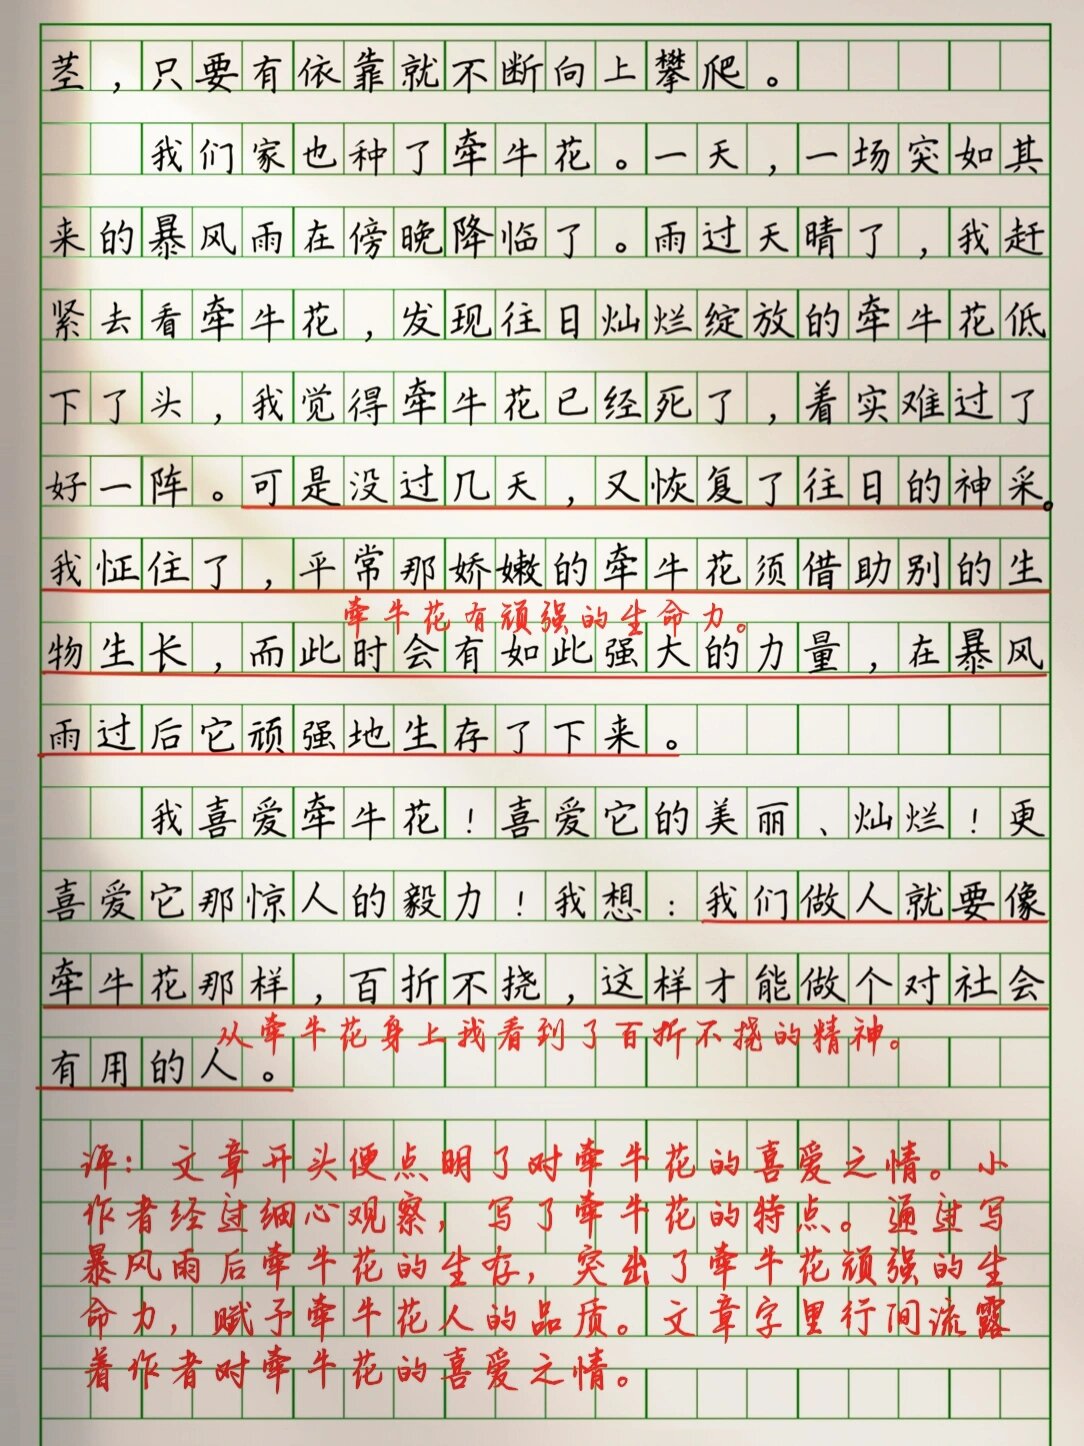 茎，只要有依靠就不断向上攀爬。
我们家也种了牵牛花。一天，一场突如其
来的暴风雨在傍晚降临了。雨过天晴了，我赶
紧去看牵牛花，发现往日灿烂绽放的牵牛花低
下了头，我觉得牵牛花已经死了，着实难过了
好一阵。可是没过几天，又恢复了往日的神采。
我怔住了，平常那娇嫩的牵牛花须借助别的生
牵牛花有顽强的生命力。
物生长，而此时会有如此强大的力量，在暴风
雨过后它顽强地生存了下来。
我喜爱牵牛花！喜爱它的美丽、灿烂！更
喜爱它那惊人的毅力！我想：我们做人就要像
牵牛花那样，百折不挠，这样才能做个对社会
从牵牛花身上我看到了百折不挠的精神。
有用的人。
评：文章开头便点明了对牵牛花的喜爱之情。小
作者经过细心观察，写了牵牛花的特点。通过写
暴风雨后牵牛花的生存，突出了牵牛花顽强的生
命力，赋予牵牛花人的品质。文章字里行间流露
着作者对牵牛花的喜爱之情。